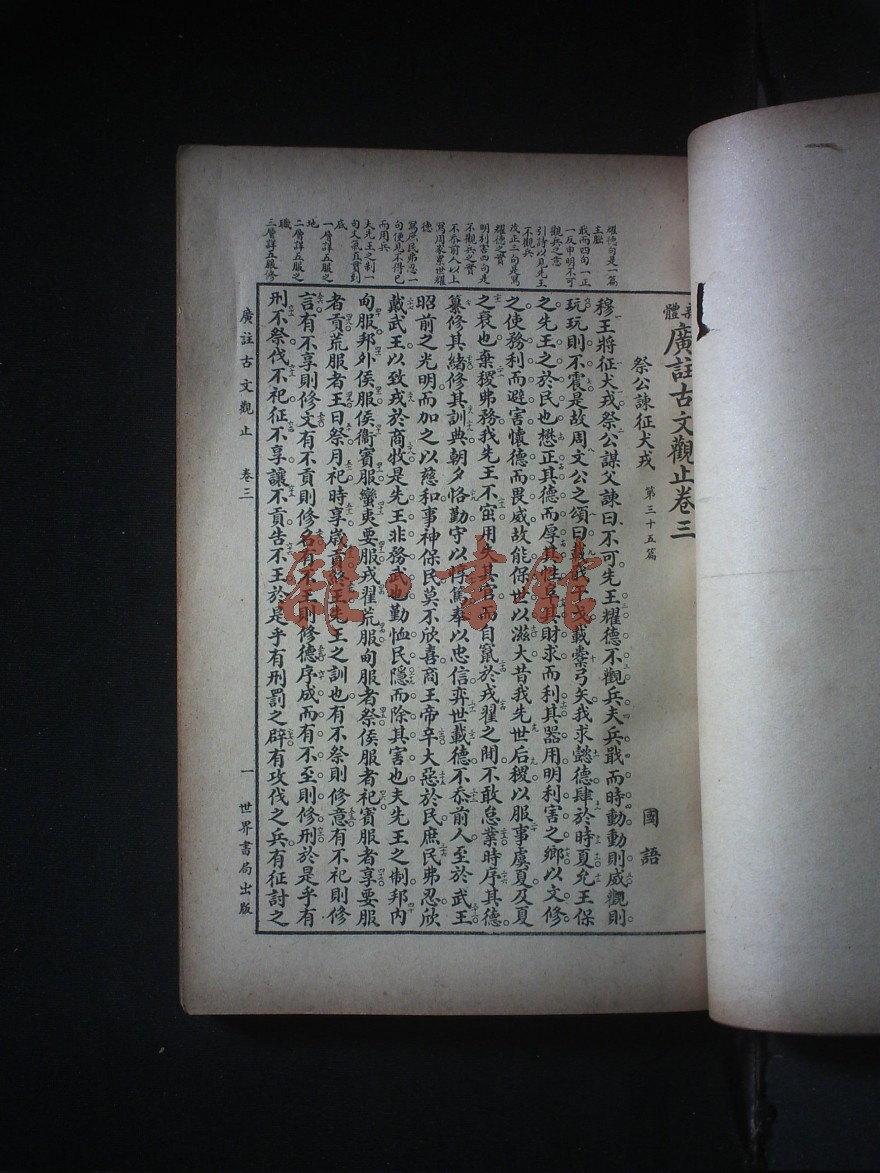 言體廣註古文觀止卷三
祭公諫征犬戎 第三十五篇 國語
穆王將征犬戎祭公謀父諫曰不可先王耀德不觀兵夫兵戢而時動動則威觀則
玩玩則不震是故周文公之頌曰載戢干戈載櫜弓矢我求懿德肆於時夏允王保
之先王之於民也懋正其德而厚其性阜其財求而利其器用明利害之鄉以文修
之使務利而避害懷德而畏威故能保世以滋大昔我先世后稷以服事虞夏及夏
之衰也棄稷弗務我先王不窋用失其官而自竄於戎翟之間不敢怠業時序其德
纂修其緒修其訓典朝夕恪勤守以惇篤奉以忠信弈世載德不忝前人至於武王
昭前之光明而加之以慈和事神保民莫不欣喜商王帝辛大惡於民庶民弗忍欣
戴武王以致戎於商牧是先王非務武也勤恤民隱而除其害也夫先王之制邦內
甸服邦外侯服侯衞賓服蠻夷要服戎翟荒服甸服者祭侯服者祀賓服者享要服
者貢荒服者王日祭月祀時享歲貢終王先王之訓也有不祭則修意有不祀則修
言有不享則修文有不貢則修名有不王則修德序成而有不至則修刑於是乎有
刑不祭伐不祀征不享讓不貢告不王於是乎有刑罰之辟有攻伐之兵有征討之
耀德句是一篇
主腦
戢而四句一正
一反申明不可
觀兵之意
引詩以見先王
不觀兵
茂正三句是寫
耀德之實
明利害四句是
不觀兵之實
不忝前人以上
寫周家累世耀
德
寫庶民弗忍一
句便見不得已
而用兵
夫先王之制一
句文氣直貫到
底
一層詳五服之
地
二層詳五服之
職
三層詳五服修
廣註古文觀止 卷三 一 世界書局出版